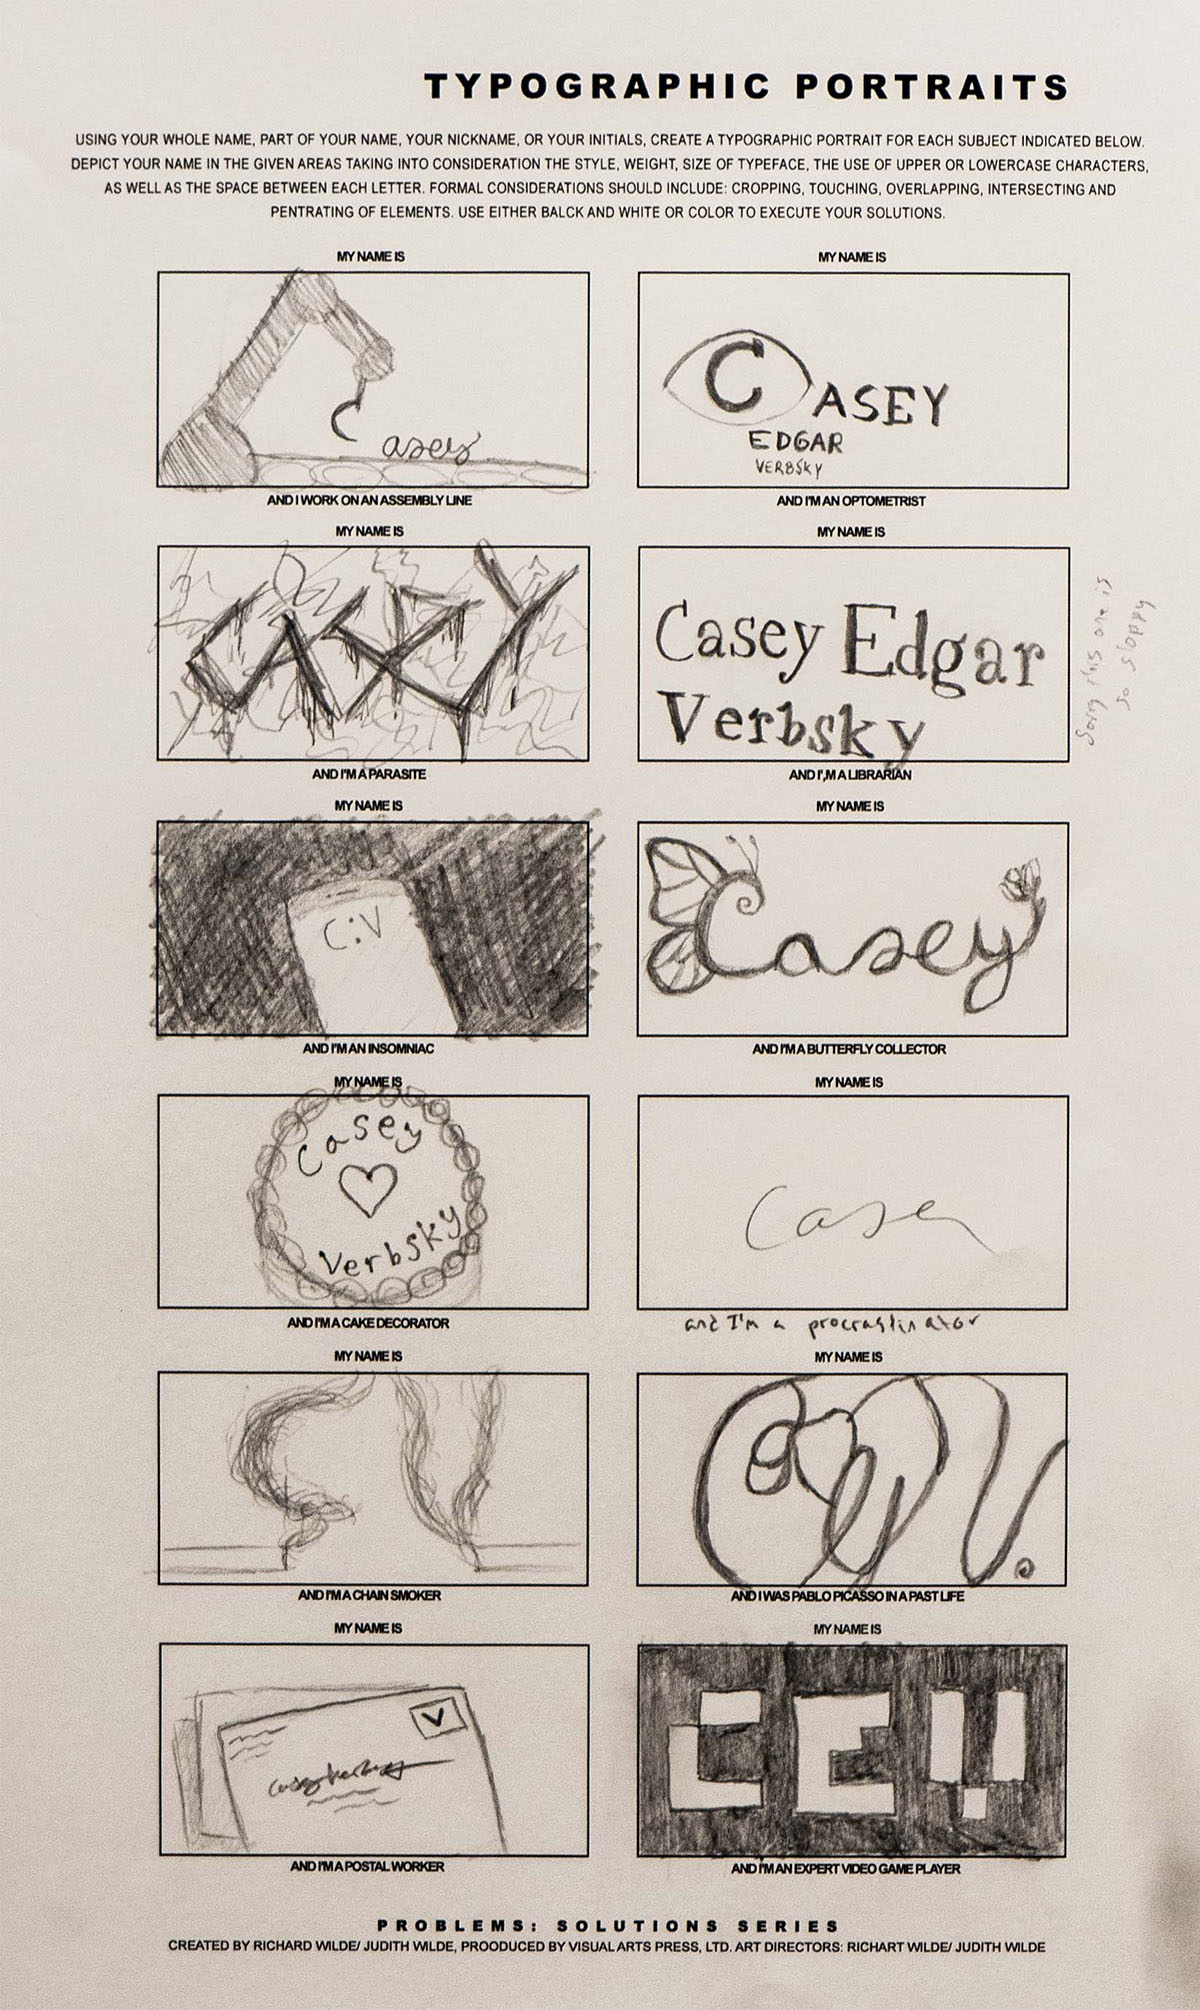 TYPOGRAPHIC PORTRAITS
USING YOUR WHOLE NAME, PART OF YOUR NAME, YOUR NICKNAME, OR YOUR INITIALS, CREATE A TYPOGRAPHIC PORTRAIT FOR EACH SUBJECT INDICATED BELOW.
DEPICT YOUR NAME IN THE GIVEN AREAS TAKING INTO CONSIDERATION THE STYLE, WEIGHT, SIZE OF TYPEFACE, THE USE OF UPPER OR LOWERCASE CHARACTERS,
AS WELL AS THE SPACE BETWEEN EACH LETTER. FORMAL CONSIDERATIONS SHOULD INCLUDE: CROPPING, TOUCHING, OVERLAPPING, INTERSECTING AND
PENTRATING OF ELEMENTS. USE EITHER BALCK AND WHITE OR COLOR TO EXECUTE YOUR SOLUTIONS.
MY NAME IS
Casey
AND I WORK ON AN ASSEMBLY LINE
MY NAME IS
CASEY
EDGAR
VERBSKY
AND I'M AN OPTOMETRIST
MY NAME IS
CASEY
AND I'M A PARASITE
MY NAME IS
Casey Edgar
Verbsky
AND I',M A LIBRARIAN
Sorry this one is
so sloppy
MY NAME IS
C:V
AND I'M AN INSOMNIAC
MY NAME IS
Casey
AND I'M A BUTTERFLY COLLECTOR
MY NAME IS
Casey
Verbsky
AND I'M A CAKE DECORATOR
MY NAME IS
Casey
and I'm a procrastinator
MY NAME IS
C V
AND I'M A CHAIN SMOKER
MY NAME IS
AND I WAS PABLO PICASSO IN A PAST LIFE
MY NAME IS
V
Casey Verbsky
AND I'M A POSTAL WORKER
MY NAME IS
CEV
AND I'M AN EXPERT VIDEO GAME PLAYER
PROBLEMS: SOLUTIONS SERIES
CREATED BY RICHARD WILDE/ JUDITH WILDE, PROODUCED BY VISUAL ARTS PRESS, LTD. ART DIRECTORS: RICHART WILDE/ JUDITH WILDE